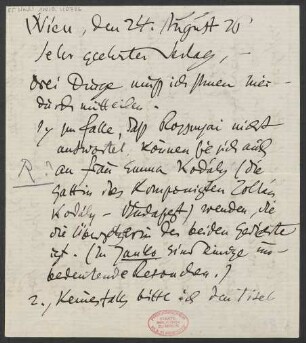 Wien, den 24. August 20
Sehr geehrter Verlag, –
Drei Dinge muß ich Ihnen hier-
durch mitteilen.
1.) Im Falle, daß Rozsnyai nicht
antwortet können Sie sich auch
an Frau Emma Kodály (die
R. ?
Gattin des Komponisten Zoltán
Kodály – Budapest) wenden, die
die Übersetzerin der beiden Gedichte
ist. (In sind einige un-
bedeutende
2.) Keinesfalls bitte ich den Titel